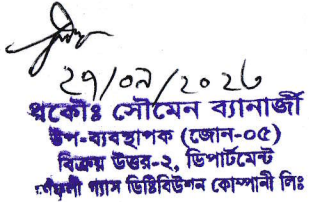 ২৭/০৯/২০২৩
প্রকৌঃ সৌমেন ব্যানার্জী
উপ-ব্যবস্থাপক (জোন-০৫)
বিক্রয় উত্তর-২, ডিপার্টমেন্ট
কর্ণফুলী গ্যাস ডিষ্ট্রিবিউশন কোম্পানী লিঃ